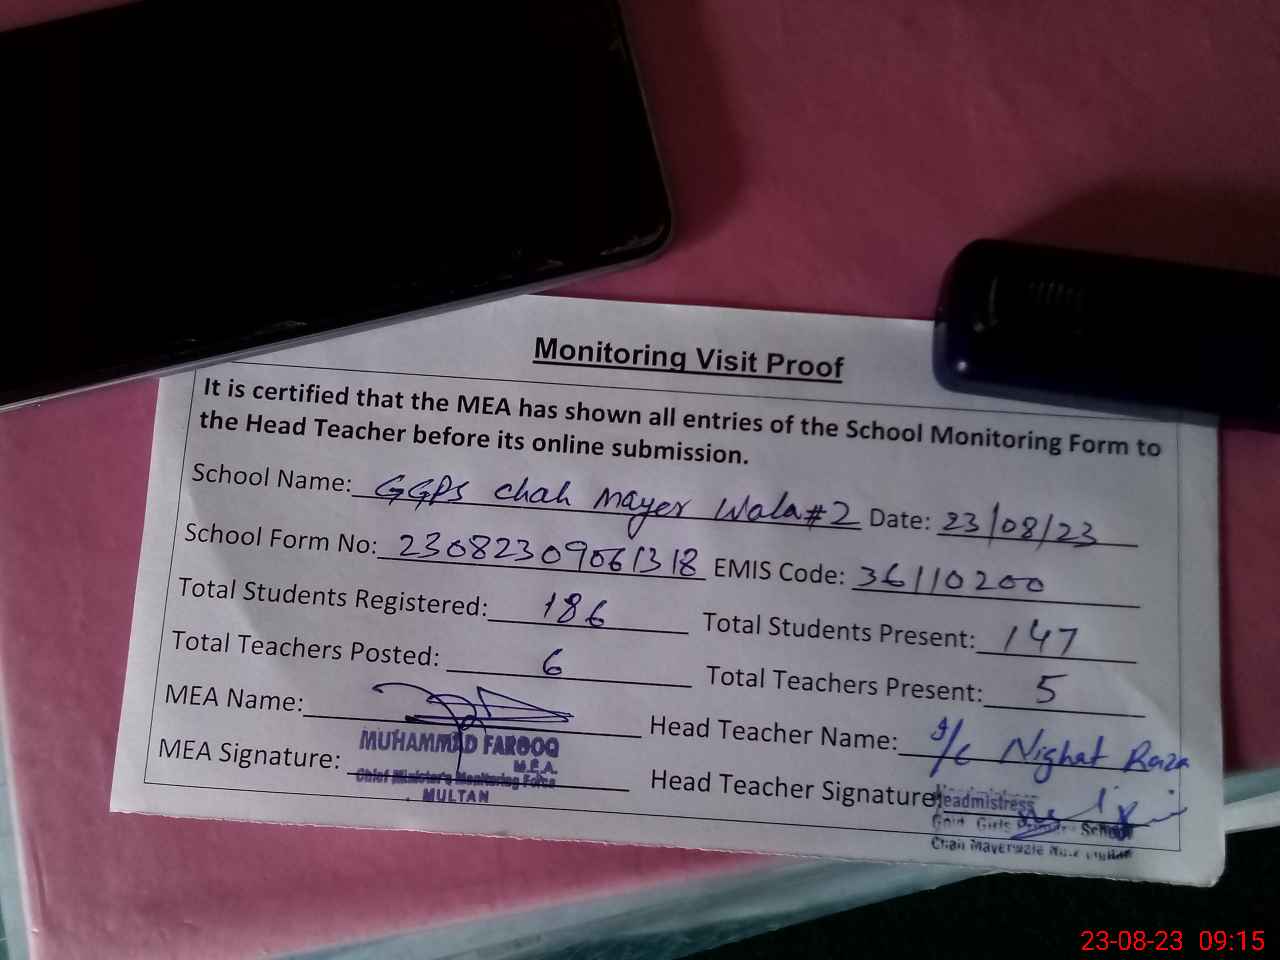 Monitoring Visit Proof
It is certified that the MEA has shown all entries of the School Monitoring Form to
the Head Teacher before its online submission.
School Name: GGPS chah mayer wala #2 Date: 23/08/23
School Form No: 23082309061318 EMIS Code: 36110200
Total Students Registered: 186 Total Students Present: 147
Total Teachers Posted: 6 Total Teachers Present: 5
MEA Name: Head Teacher Name: I/C Nighat Raza
MUHAMMAD FAROOQ
M.E.A.
Chief Minister's Monitoring Force
MULTAN
MEA Signature: Head Teacher Signature
Headmistress
Govt Girls Primary School
Chah Mayerwala
23-08-23 09:15